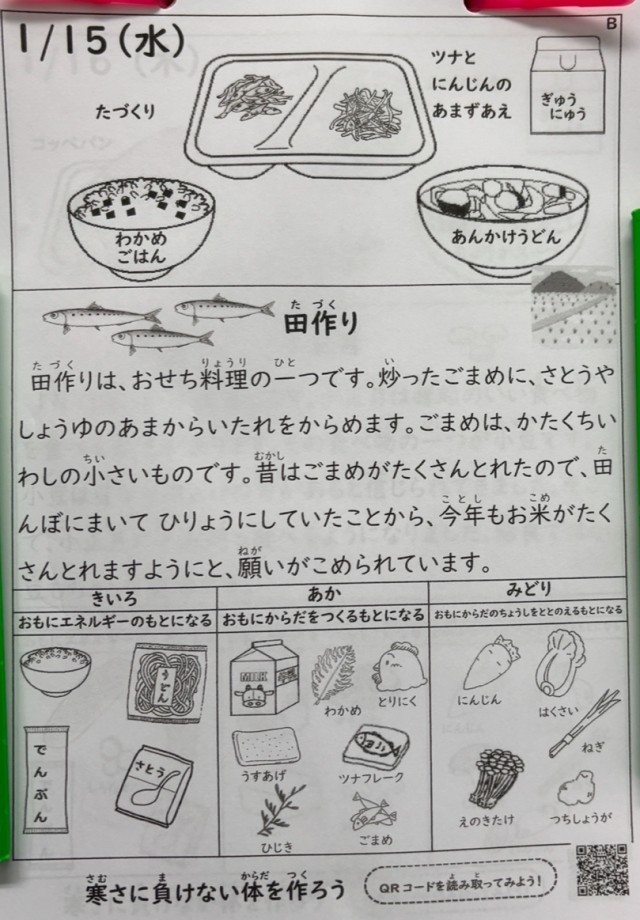 B
1/15(水)
たづくり
ツナと
にんじんの
あまずあえ
ぎゅう
にゅう
わかめ
ごはん
あんかけうどん
田作り
田作りは、おせち料理の一つです。炒ったごまめに、さとうや
しょうゆのあまからいたれをからめます。ごまめは、かたくちい
わしの小さいものです。昔はごまめがたくさんとれたので、田
んぼにまいて ひりょうにしていたことから、今年もお米がたく
さんとれますようにと、願いがこめられています。
きいろ
あか
みどり
おもにエネルギーのもとになる
おもにからだをつくるもとになる
おもにからだのちょうしをととのえるもとになる
うどん
でんぷん
さとう
MILK
わかめ
とりにく
うすあげ
ツナフレーク
ひじき
ごまめ
にんじん
はくさい
ねぎ
えのきたけ
つちしょうが
寒さに負けない体を作ろう
QRコードを読み取ってみよう!